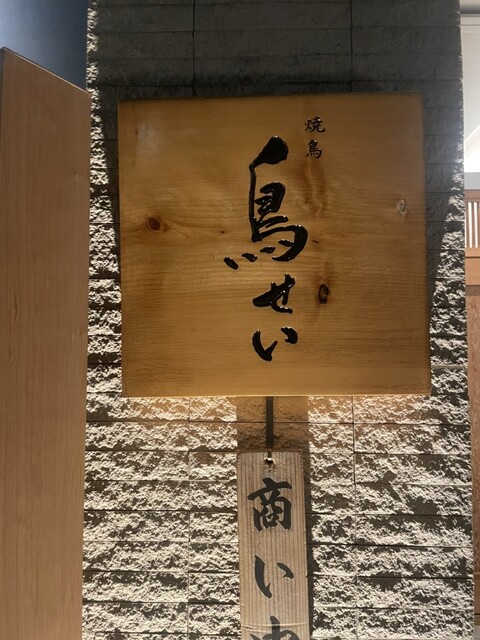 焼鳥
鳥せい
商い中